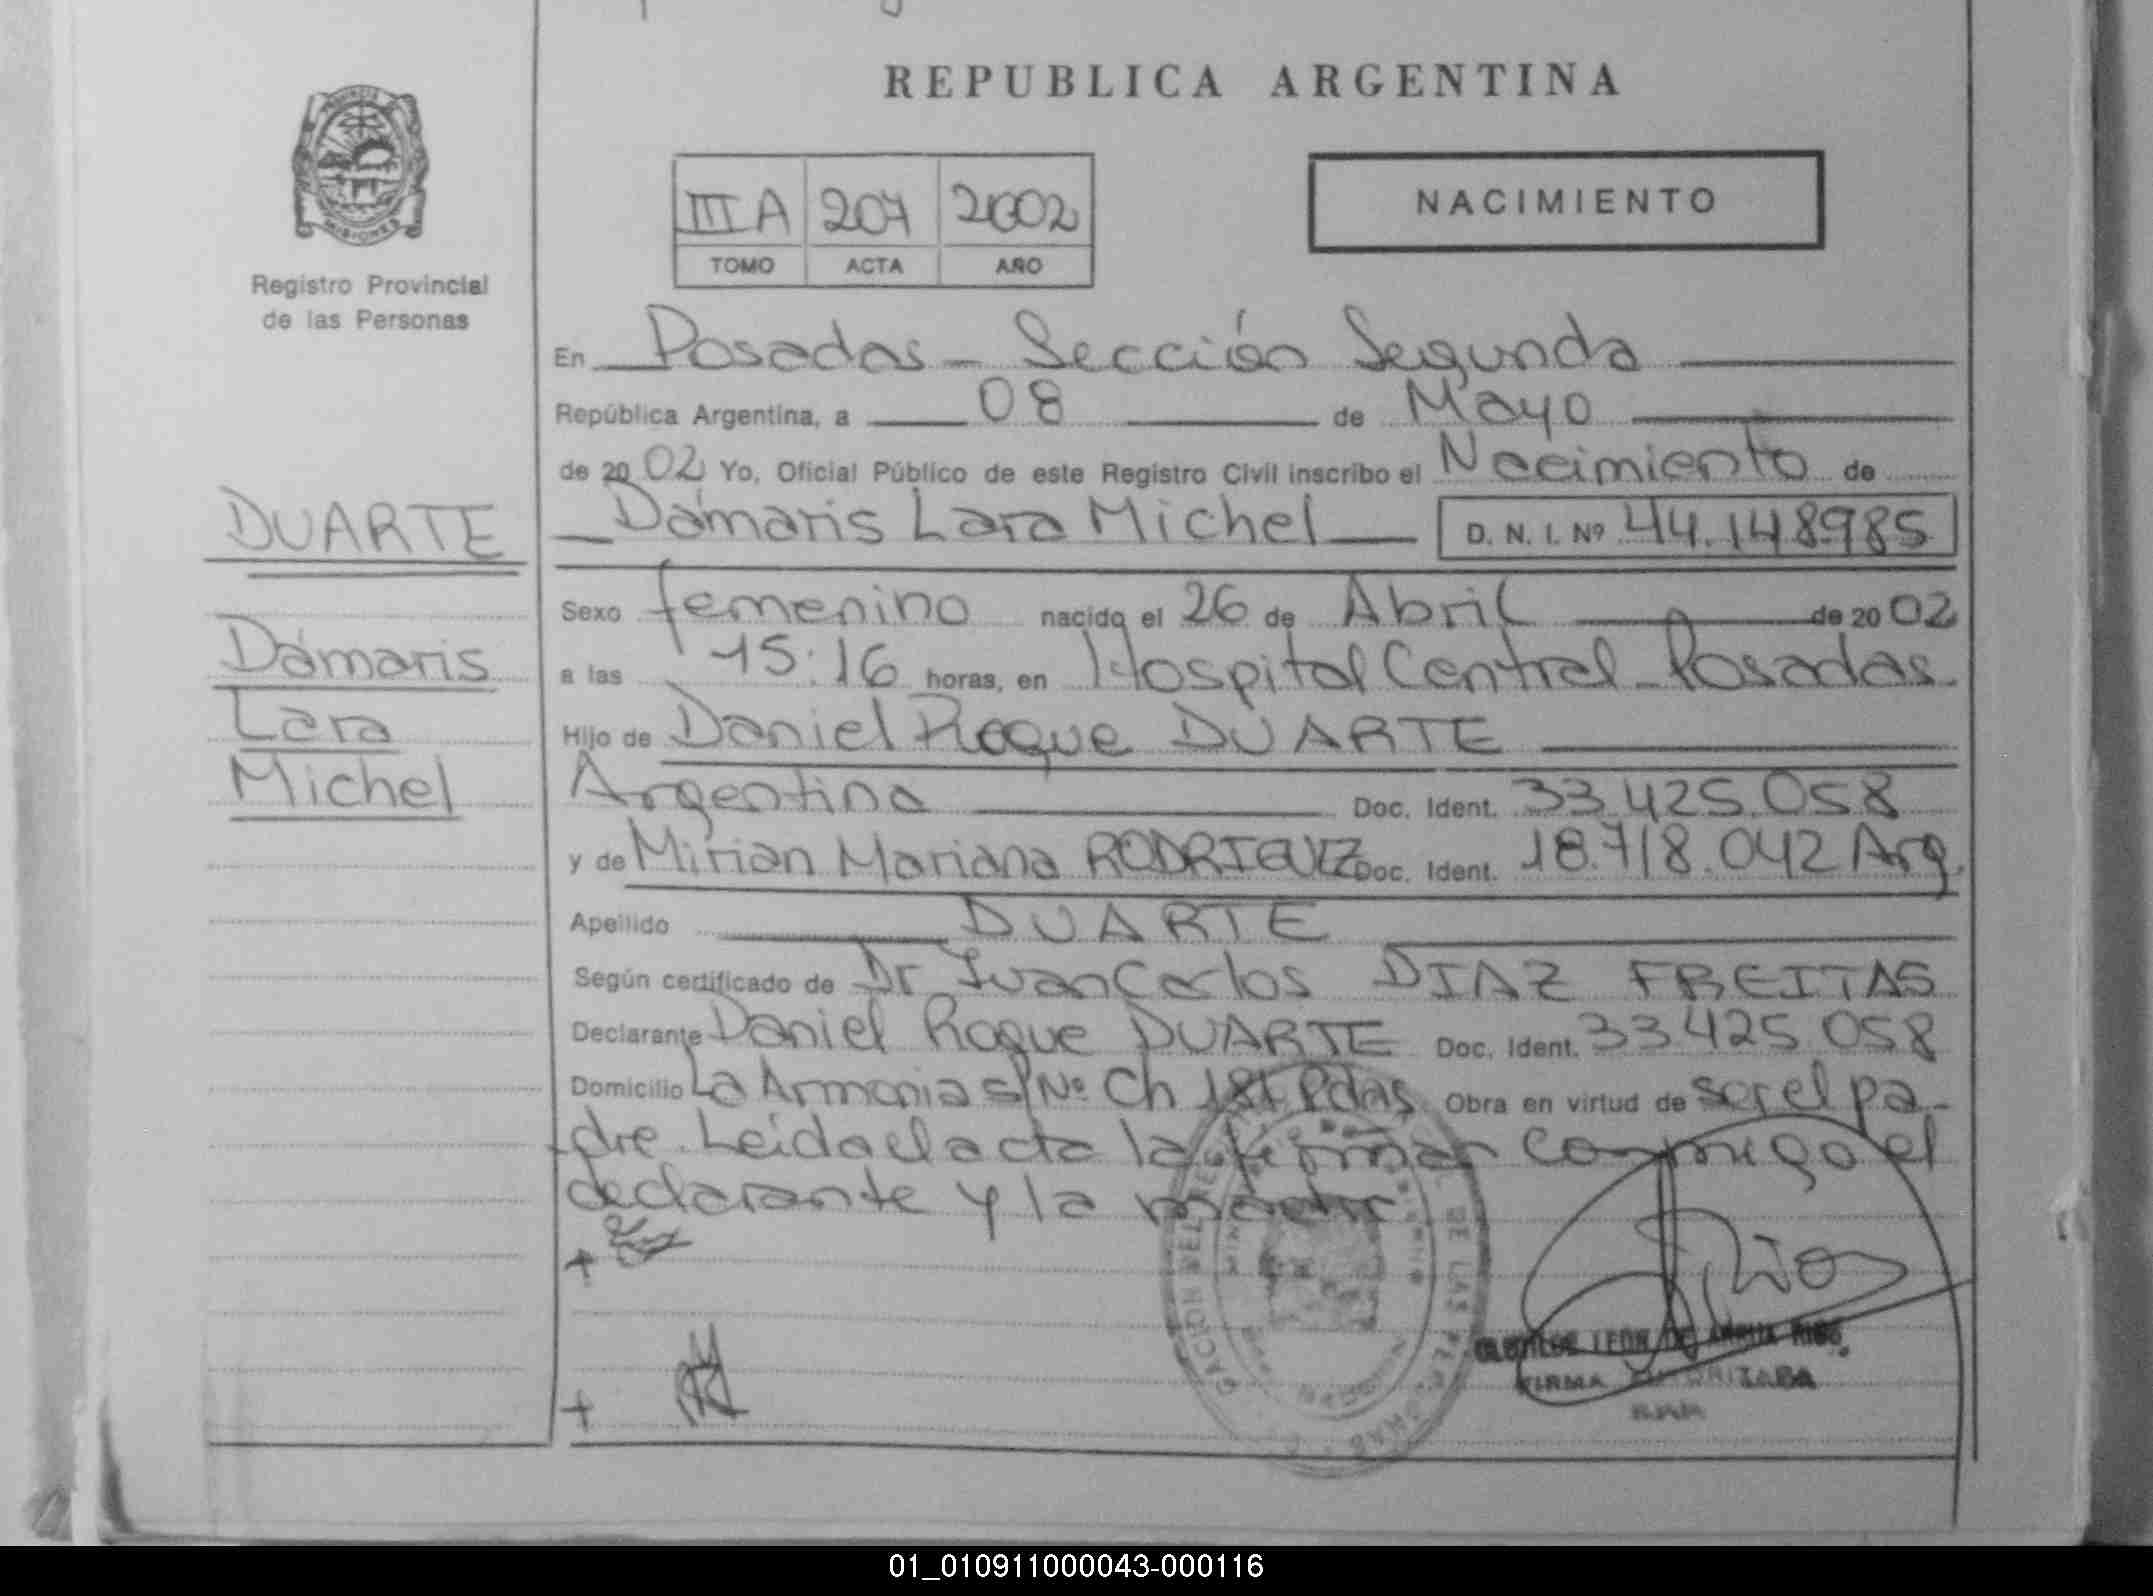 REPUBLICA ARGENTINA
PROVINCIA DE
MISIONES
Registro Provincial
de las Personas
III A 207 2002
TOMO ACTA AÑO
NACIMIENTO
En Posadas - Sección Segunda
República Argentina, a 08 de Mayo
de 2002 Yo, Oficial Público de este Registro Civil inscribo el Nacimiento de
Dámaris Lara Michel D. N. I. Nº 44.148985
DUARTE
Dámaris
Lara
Michel
Sexo femenino nacido el 26 de Abril de 2002
a las 15:16 horas, en Hospital Central - Posadas
Hijo de Daniel Roque DUARTE
Argentina Doc. Ident. 33.425.058
y de Mirian Mariana RODRIGUEZ Doc. Ident. 18.718.042 Arg.
Apellido DUARTE
Según certificado de Dr Juan Carlos DIAZ FREITAS
Declarante Daniel Roque DUARTE Doc. Ident. 33.425.058
Domicilio La Armonia S/Nº Ch 181 Pdas Obra en virtud de ser el pa-
dre. Leida el acta la firman conmigo el
declarante y la madre
DE LAS PERSONAS
LEON DE RIOS
FIRMA AUTORIZADA
01_010911000043-000116